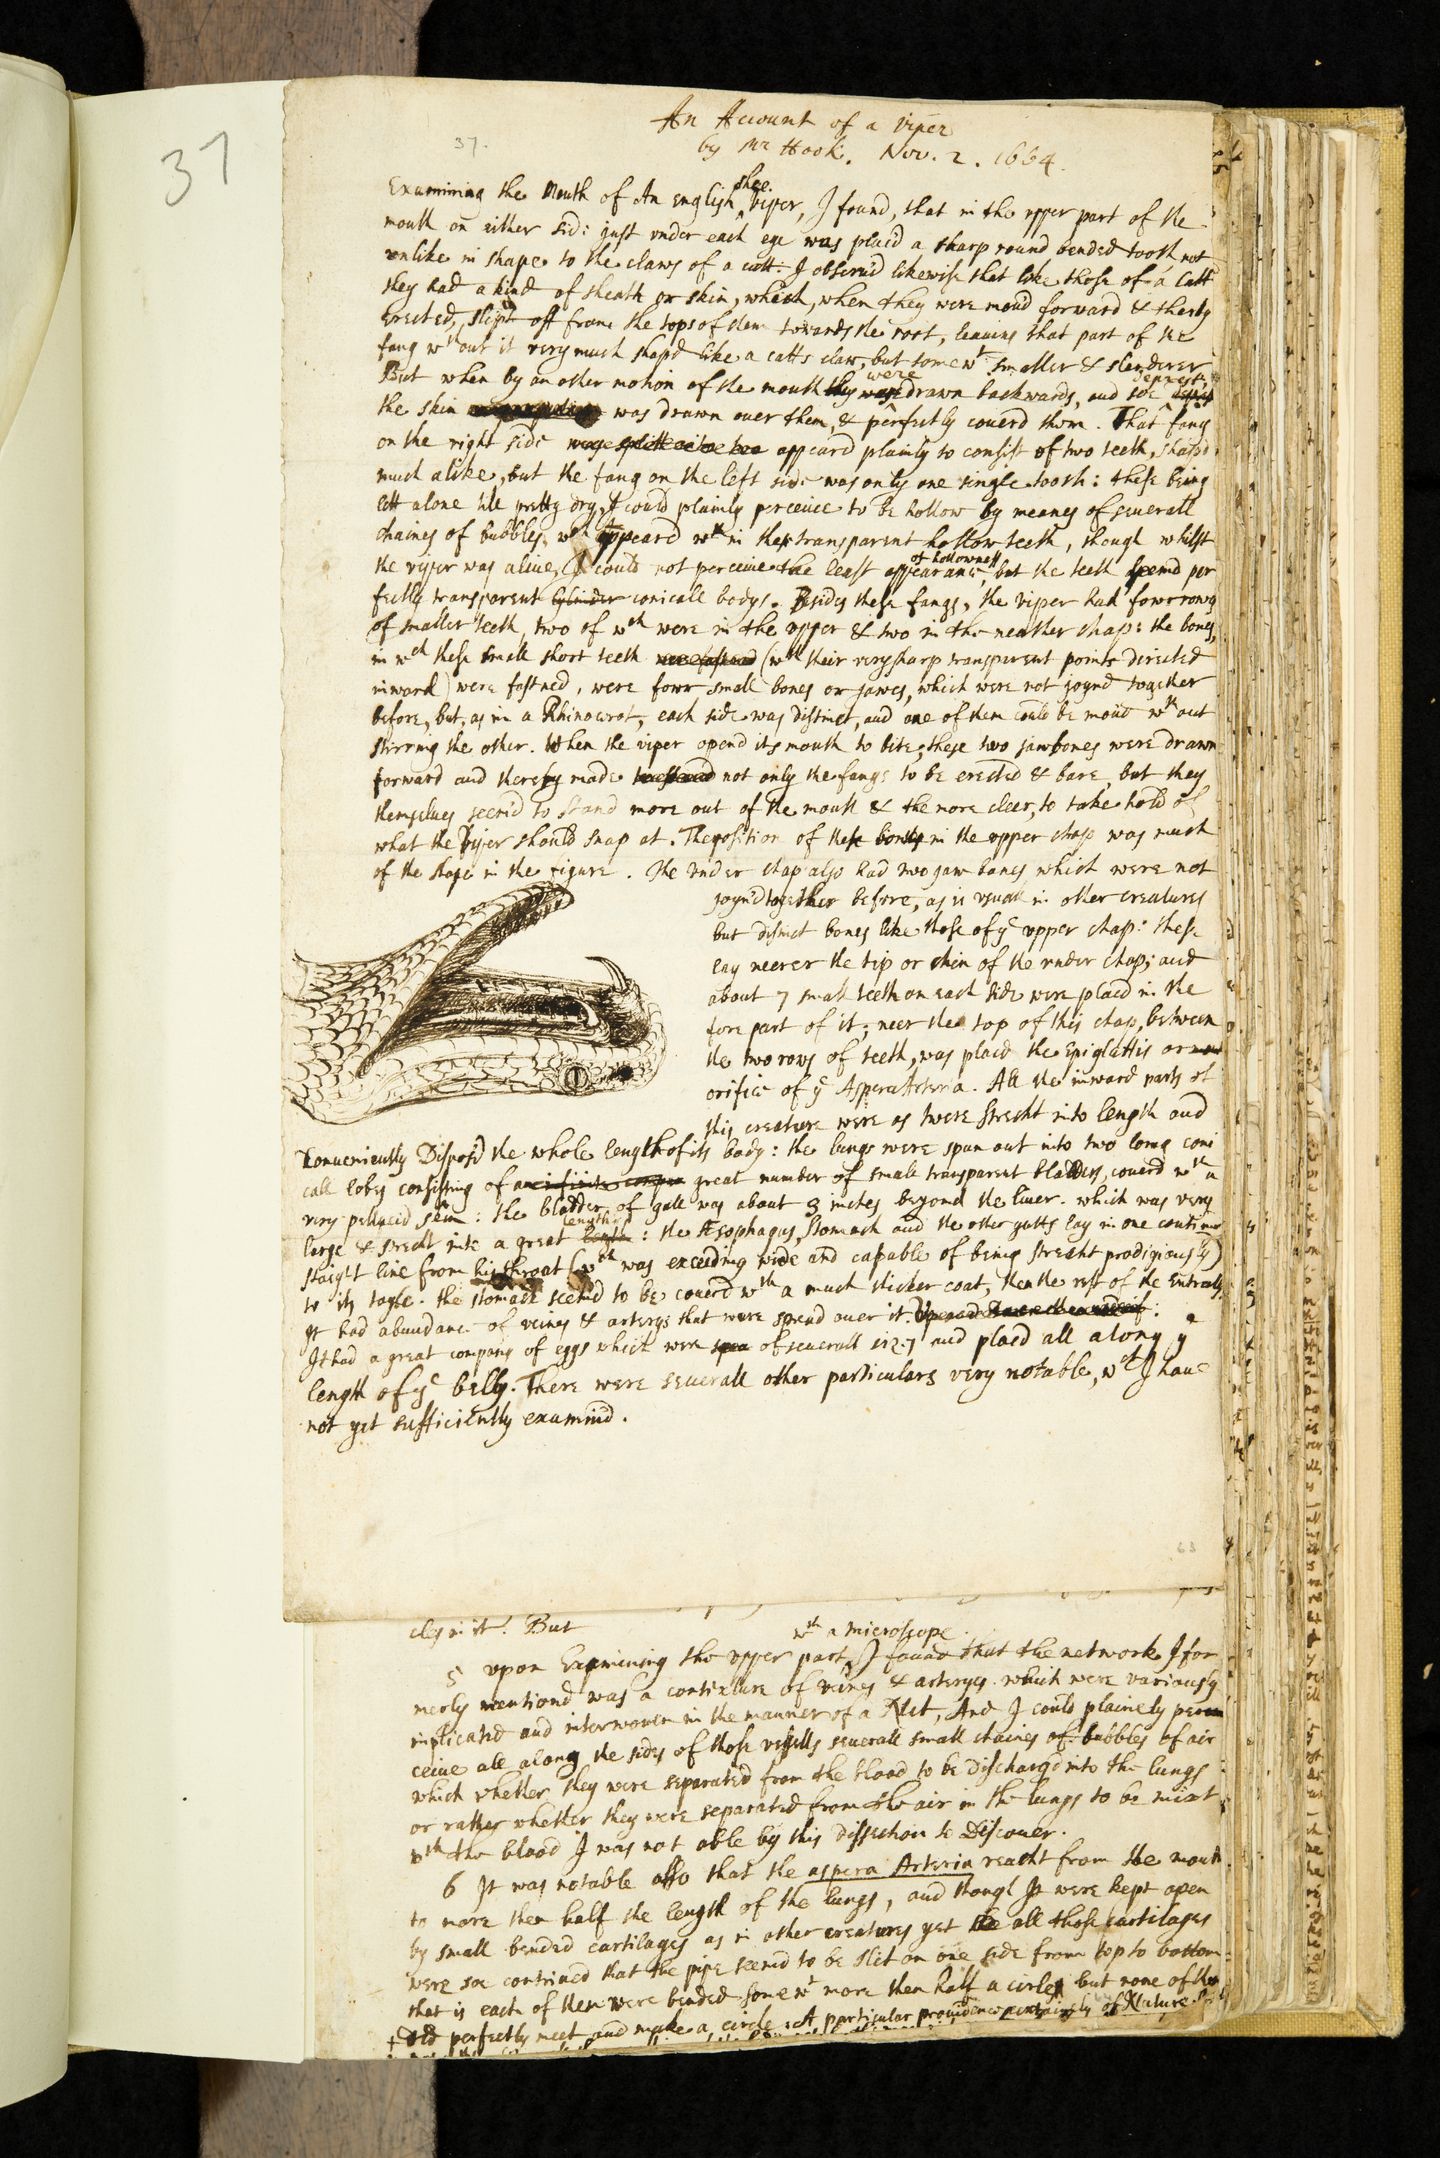 37
37.
An Account of a viper
by Mr Hook. Nov. 2. 1664.
Examining the Mouth of An English shee viper, I found, that in the upper part of the
mouth on either side just under each eye was placd a sharp round bended tooth not
unlike in shape to the claws of a catt. I observd likewise that like those of a Catt
they had a kind of sheath or skin, which, when they were movd forward & therby
Erected, slipt off from the tops of them towards the root, leaving that part of the
fang wthout it very much shapd like a catts claw, but somewt smaller & slenderer
But when by another motion of the mouth they were drawn backwards, and soe deprest,
the skin was drawn over them, & perfectly coverd them. That fang
on the right side appeard plainly to consist of two teeth, shapd
much alike, but the fang on the left side was only one single tooth: these being
lett alone till pretty dry, I could plainly perceive to be hollow by meanes of severall
chaines of bubbles wch appeard wth in the transparent hollow teeth, though whilst
the viper was alive, I could not perceive the least appearance of hollowness, but the teeth seemd per
fectly transparent cylinder conicall bodys. Besides these fangs, the viper had fowr rows
of smaller teeth, two of wch were in the upper & two in the neather chap: the bones,
in wch these small short teeth were fastned (wth their very sharp transparent points directed
inward) were fastned, were fowr small bones or jawes, which were not joynd together
before, but, as in a Rhinocerot, each side was distinct, and one of them could be movd wthout
stirring the other. When the viper opend its mouth to bite, these two jawbones were drawn
forward and thereby made not only the fangs to be erected & bare, but they
themselves seem'd to stand more out of the mouth & the more cleer, to take hold of
what the viper should snap at. The position of these bones in the upper chap was much
of the shape in the figure. The under chap also had two jaw bones which were not
joynd together before, as is usuall in other creatures
but distinct bones like those of ye upper chap: these
lay neerer the tip or chin of the under chap; and
about 7 small teeth on each side were placd in the
fore part of it; neer the top of this chap, between
the two rows of teeth, was placd the Epiglottis or
orifice of ye Aspera Arteria. All the inward parts of
this creature were as twere strecht into length and
conveniently Disposd the whole length of its body: the lungs were spun out into two long coni
call lobes consisting of a great number of small transparent bladders, coverd wth a
very pellucid skin: the bladder of gall was about 3 inches beyond the liver. which was very
large & strecht into a great length: the Æsophagus, stomach and the other gutts lay in one continu
straight line from his throat (wch was exceeding wide and capable of being strecht prodigiously)
to its tayle. the stomach seemd to be coverd wth a much thicker coat, then the rest of the Entralls,
It had abundance of veines & arterys that were spread over it.
It had a great company of eggs which were of severall sizes and placd all along ye
length of ye belly. There were severall other particulars very notable, wch I have
not yet sufficiently examind.
63
But
5 upon Examining the upper part, wth a microscope I found that the network I for
merly mentiond was a contexture of veines & arterys which were variously
implicated and interwoven in the manner of a Nett, And I could plainely per
ceive all along the sides of those vessells severall small chaines of bubbles of air
which whether they were separated from the blood to be Discharg'd into the lungs
or rather whether they were separated from the air in the lungs to be mixt
wth the blood I was not able by this dissection to Discover.
6 It was notable also that the aspera Arteria reacht from the mouth
to more then half the length of the lungs, and though It were kept open
by small bended cartilages as in other creatures yet all those cartilages
were soe contrived that the pipe seemd to be slit on one side from top to bottom
that is each of them were bended somewt more then half a circle but none of them
did perfectly meet and make a circle: A particular providence certainly of Nature